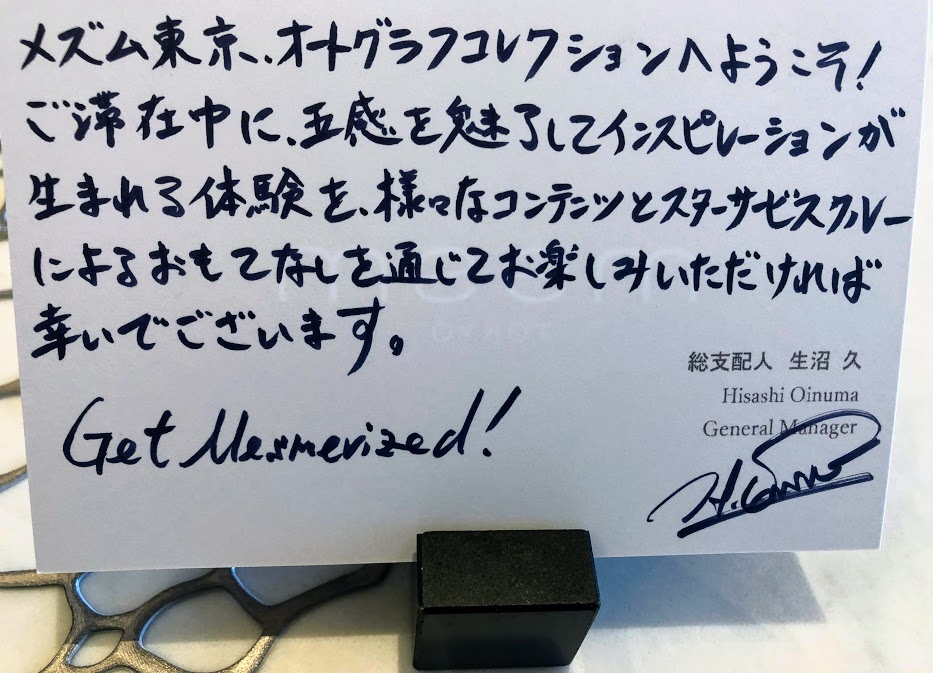 メズム東京、オートグラフコレクションへようこそ！
ご滞在中に、五感を魅了してインスピレーションが
生まれる体験を、様々なコンテンツとスターサービスクルー
によるおもてなしを通じてお楽しみいただければ
幸いでございます。
総支配人 生沼 久
Hisashi Oinuma
General Manager
Get Mesmerized!